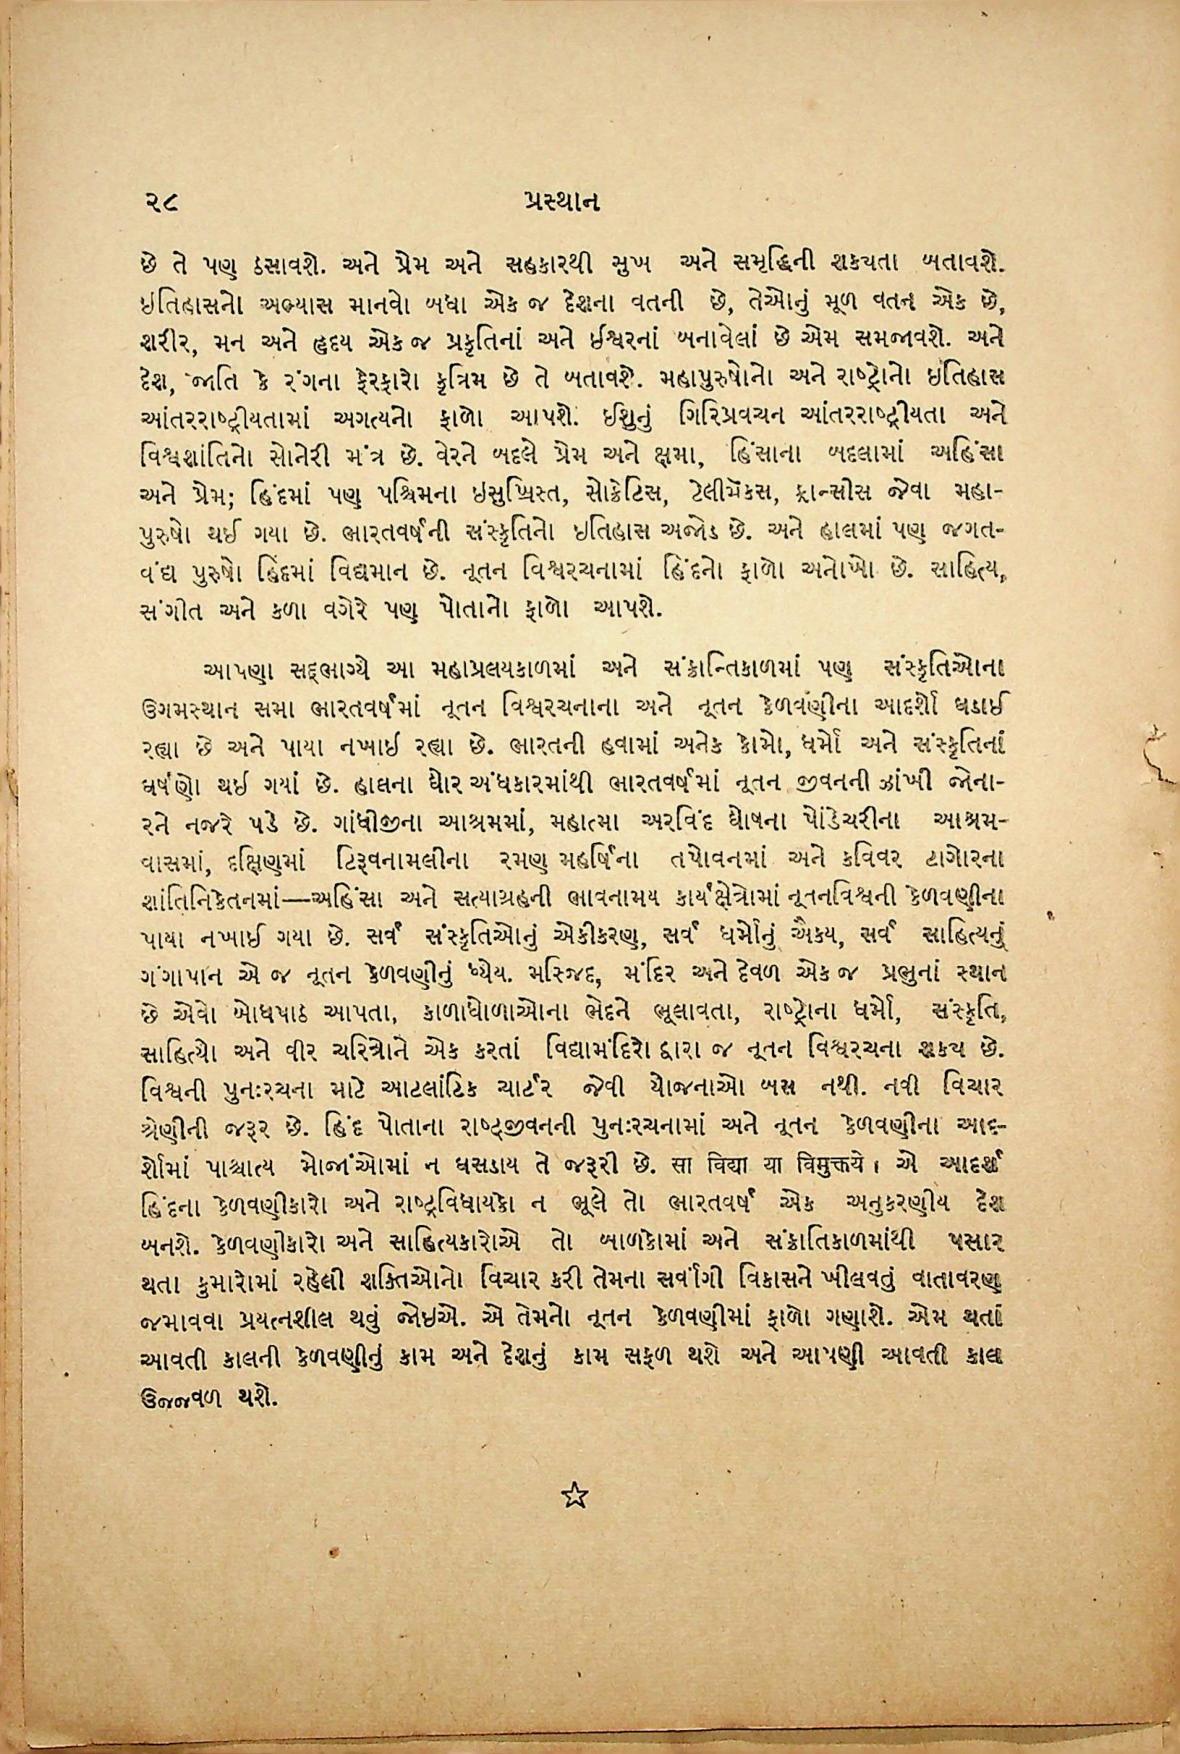 ૨૮
પ્રસ્થાન
છે તે પણ ઠસાવશે. અને પ્રેમ અને સહકારથી સુખ અને સમૃદ્ધિની શક્યતા બતાવશે.
ઇતિહાસનો અભ્યાસ માનવો બધા એક જ દેશના વતની છે, તેઓનું મૂળ વતન એક છે,
શરીર, મન અને હૃદય એક જ પ્રકૃતિનાં અને ઈશ્વરનાં બનાવેલાં છે એમ સમજાવશે. અને
દેશ, જાતિ કે રંગના ફેરફારો કૃત્રિમ છે તે બતાવશે. મહાપુરુષોનો અને રાષ્ટ્રોનો ઇતિહાસ
આંતરરાષ્ટ્રીયતામાં અગત્યનો ફાળો આપશે. ઈશુનું ગિરિપ્રવચન આંતરરાષ્ટ્રીયતા અને
વિશ્વશાંતિનો સોનેરી મંત્ર છે. વેરને બદલે પ્રેમ અને ક્ષમા, હિંસાના બદલામાં અહિંસા
અને પ્રેમ; હિંદમાં પણ પશ્ચિમના ઇસુખ્રિસ્ત, સોક્રેટિસ, ટેલીમૅકસ, ફ્રાન્સીસ જેવા મહા-
પુરુષો થઈ ગયા છે. ભારતવર્ષની સંસ્કૃતિનો ઇતિહાસ અજોડ છે. અને હાલમાં પણ જગત-
વંદ્ય પુરુષો હિંદમાં વિદ્યમાન છે. નૂતન વિશ્વરચનામાં હિંદનો ફાળો અનોખો છે. સાહિત્ય,
સંગીત અને કળા વગેરે પણ પોતાનો ફાળો આપશે.
આપણા સદ્ભાગ્યે આ મહાપ્રલયકાળમાં અને સંક્રાન્તિકાળમાં પણ સંસ્કૃતિઓના
ઉગમસ્થાન સમા ભારતવર્ષમાં નૂતન વિશ્વરચનાના અને નૂતન કેળવણીના આદર્શો ઘડાઈ
રહ્યા છે અને પાયા નખાઈ રહ્યા છે. ભારતની હવામાં અનેક કોમો, ધર્મો અને સંસ્કૃતિનાં
ઘર્ષણો થઈ ગયાં છે. હાલના ઘોર અંધકારમાંથી ભારતવર્ષમાં નૂતન જીવનની ઝાંખી જોના-
રને નજરે પડે છે. ગાંધીજીના આશ્રમમાં, મહાત્મા અરવિંદ ઘોષના પોંડિચરીના આશ્રમ-
વાસમાં, દક્ષિણમાં ટિરૂવનામલીના રમણ મહર્ષિના તપોવનમાં અને કવિવર ટાગોરના
શાંતિનિકેતનમાં—અહિંસા અને સત્યાગ્રહની ભાવનામય કાર્યક્ષેત્રોમાં નૂતનવિશ્વની કેળવણીના
પાયા નખાઈ ગયા છે. સર્વ સંસ્કૃતિઓનું એકીકરણ, સર્વ ધર્મોનું ઐક્ય, સર્વ સાહિત્યનું
ગંગાપાન એ જ નૂતન કેળવણીનું ધ્યેય. મસ્જિદ, મંદિર અને દેવળ એક જ પ્રભુનાં સ્થાન
છે એવો બોધપાઠ આપતા, કાળાધોળાઓના ભેદને ભૂલાવતા, રાષ્ટ્રોના ધર્મો, સંસ્કૃતિ,
સાહિત્યો અને વીર ચરિત્રોને એક કરતાં વિદ્યામંદિરો દ્વારા જ નૂતન વિશ્વરચના શક્ય છે.
વિશ્વની પુનઃરચના માટે આટલાંટિક ચાર્ટર જેવી યોજનાઓ બસ નથી. નવી વિચાર
શ્રેણીની જરૂર છે. હિંદ પોતાના રાષ્ટ્રજીવનની પુનઃરચનામાં અને નૂતન કેળવણીના આદ-
ર્શોમાં પાશ્ચાત્ય મોજાંઓમાં ન ઘસડાય તે જરૂરી છે. सा विद्या या विमुक्तये। એ આદર્શ
હિંદના કેળવણીકારો અને રાષ્ટ્રવિધાયકો ન ભૂલે તો ભારતવર્ષ એક અનુકરણીય દેશ
બનશે. કેળવણીકારો અને સાહિત્યકારોએ તો બાળકોમાં અને સંક્રાતિકાળમાંથી પસાર
થતા કુમારોમાં રહેલી શક્તિઓનો વિચાર કરી તેમના સર્વાંગી વિકાસને ખીલવતું વાતાવરણ
જમાવવા પ્રયત્નશીલ થવું જોઇએ. એ તેમનો નૂતન કેળવણીમાં ફાળો ગણાશે. એમ થતાં
આવતી કાલની કેળવણીનું કામ અને દેશનું કામ સફળ થશે અને આપણી આવતી કાલ
ઉજ્જવળ થશે.